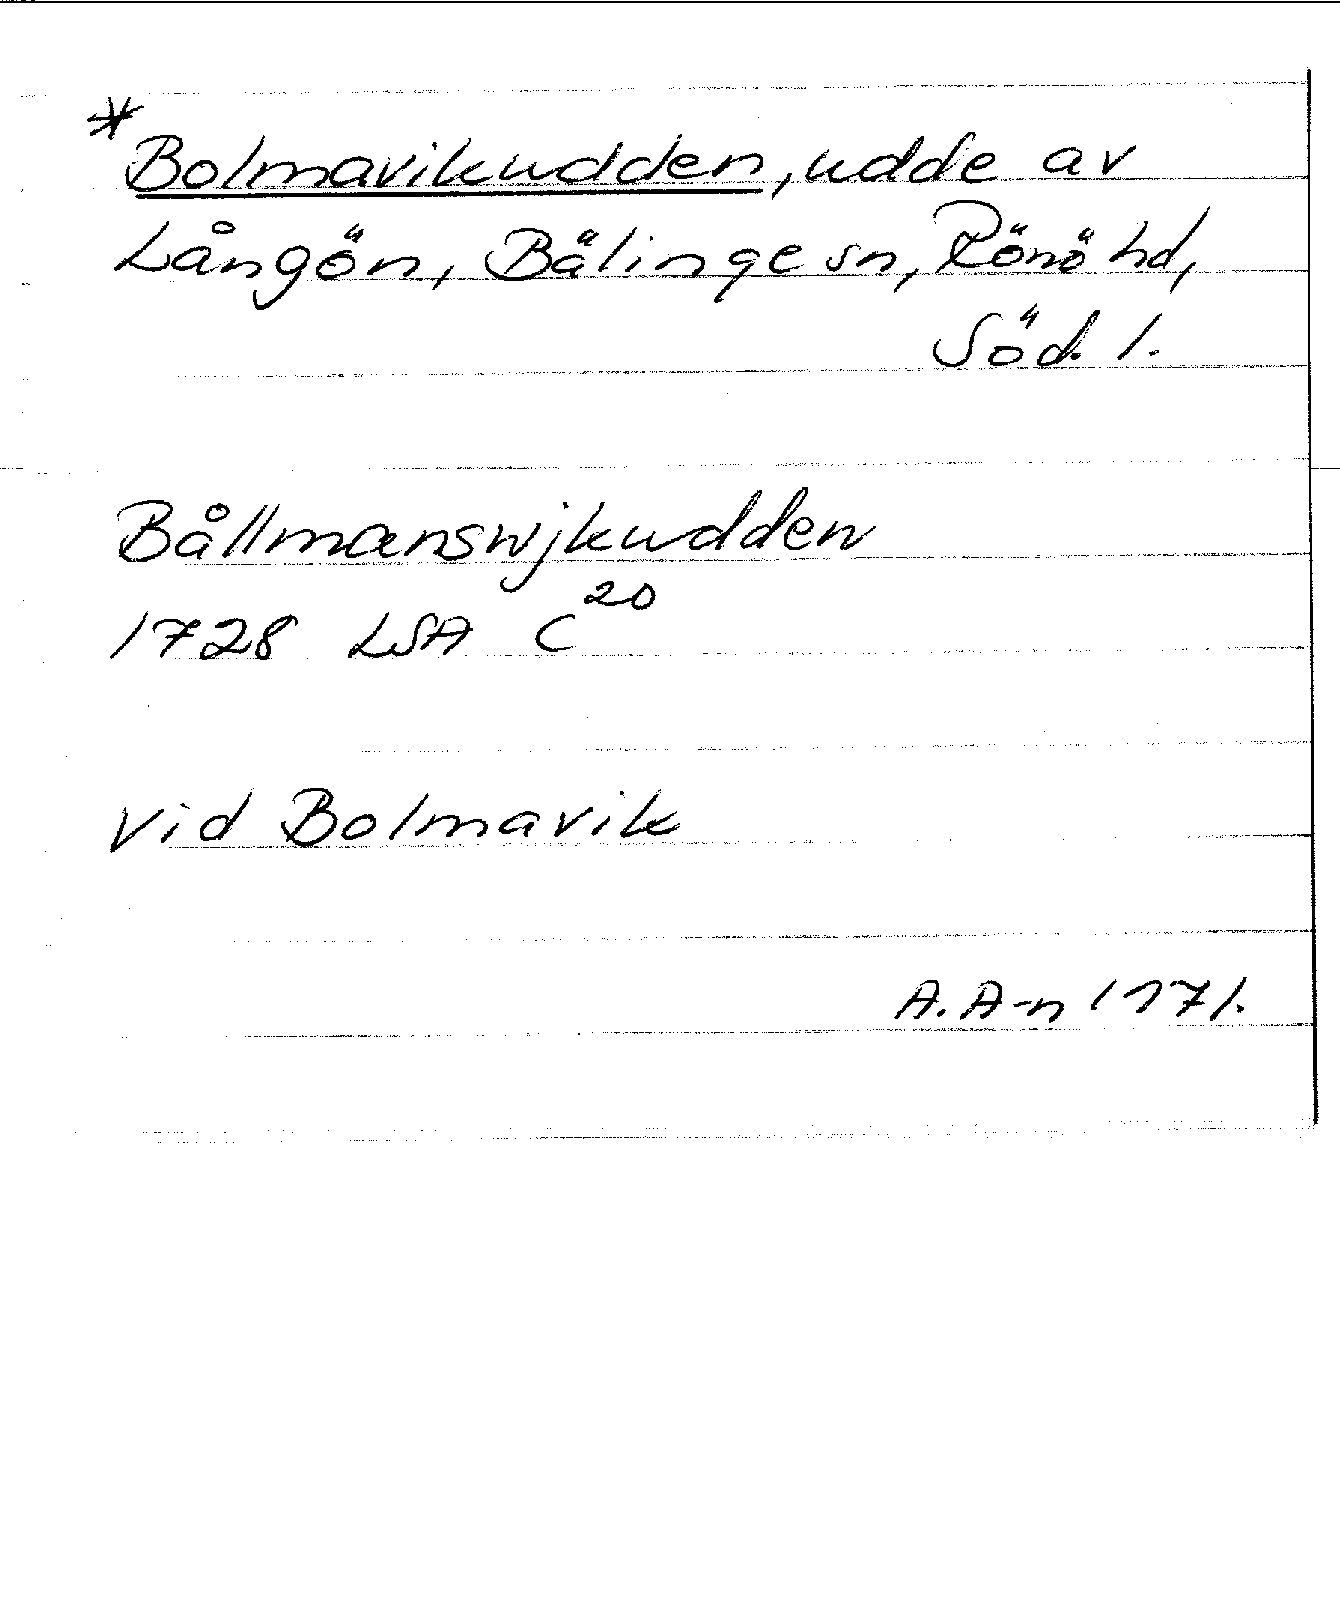 *
Bolmavikudden, udde av
Långön, Bälinge sn, Rönö hd,
Söd. l.
Bållmanswjkudden
1728 LSA C20
Vid Bolmavik
A. A-n 1971.